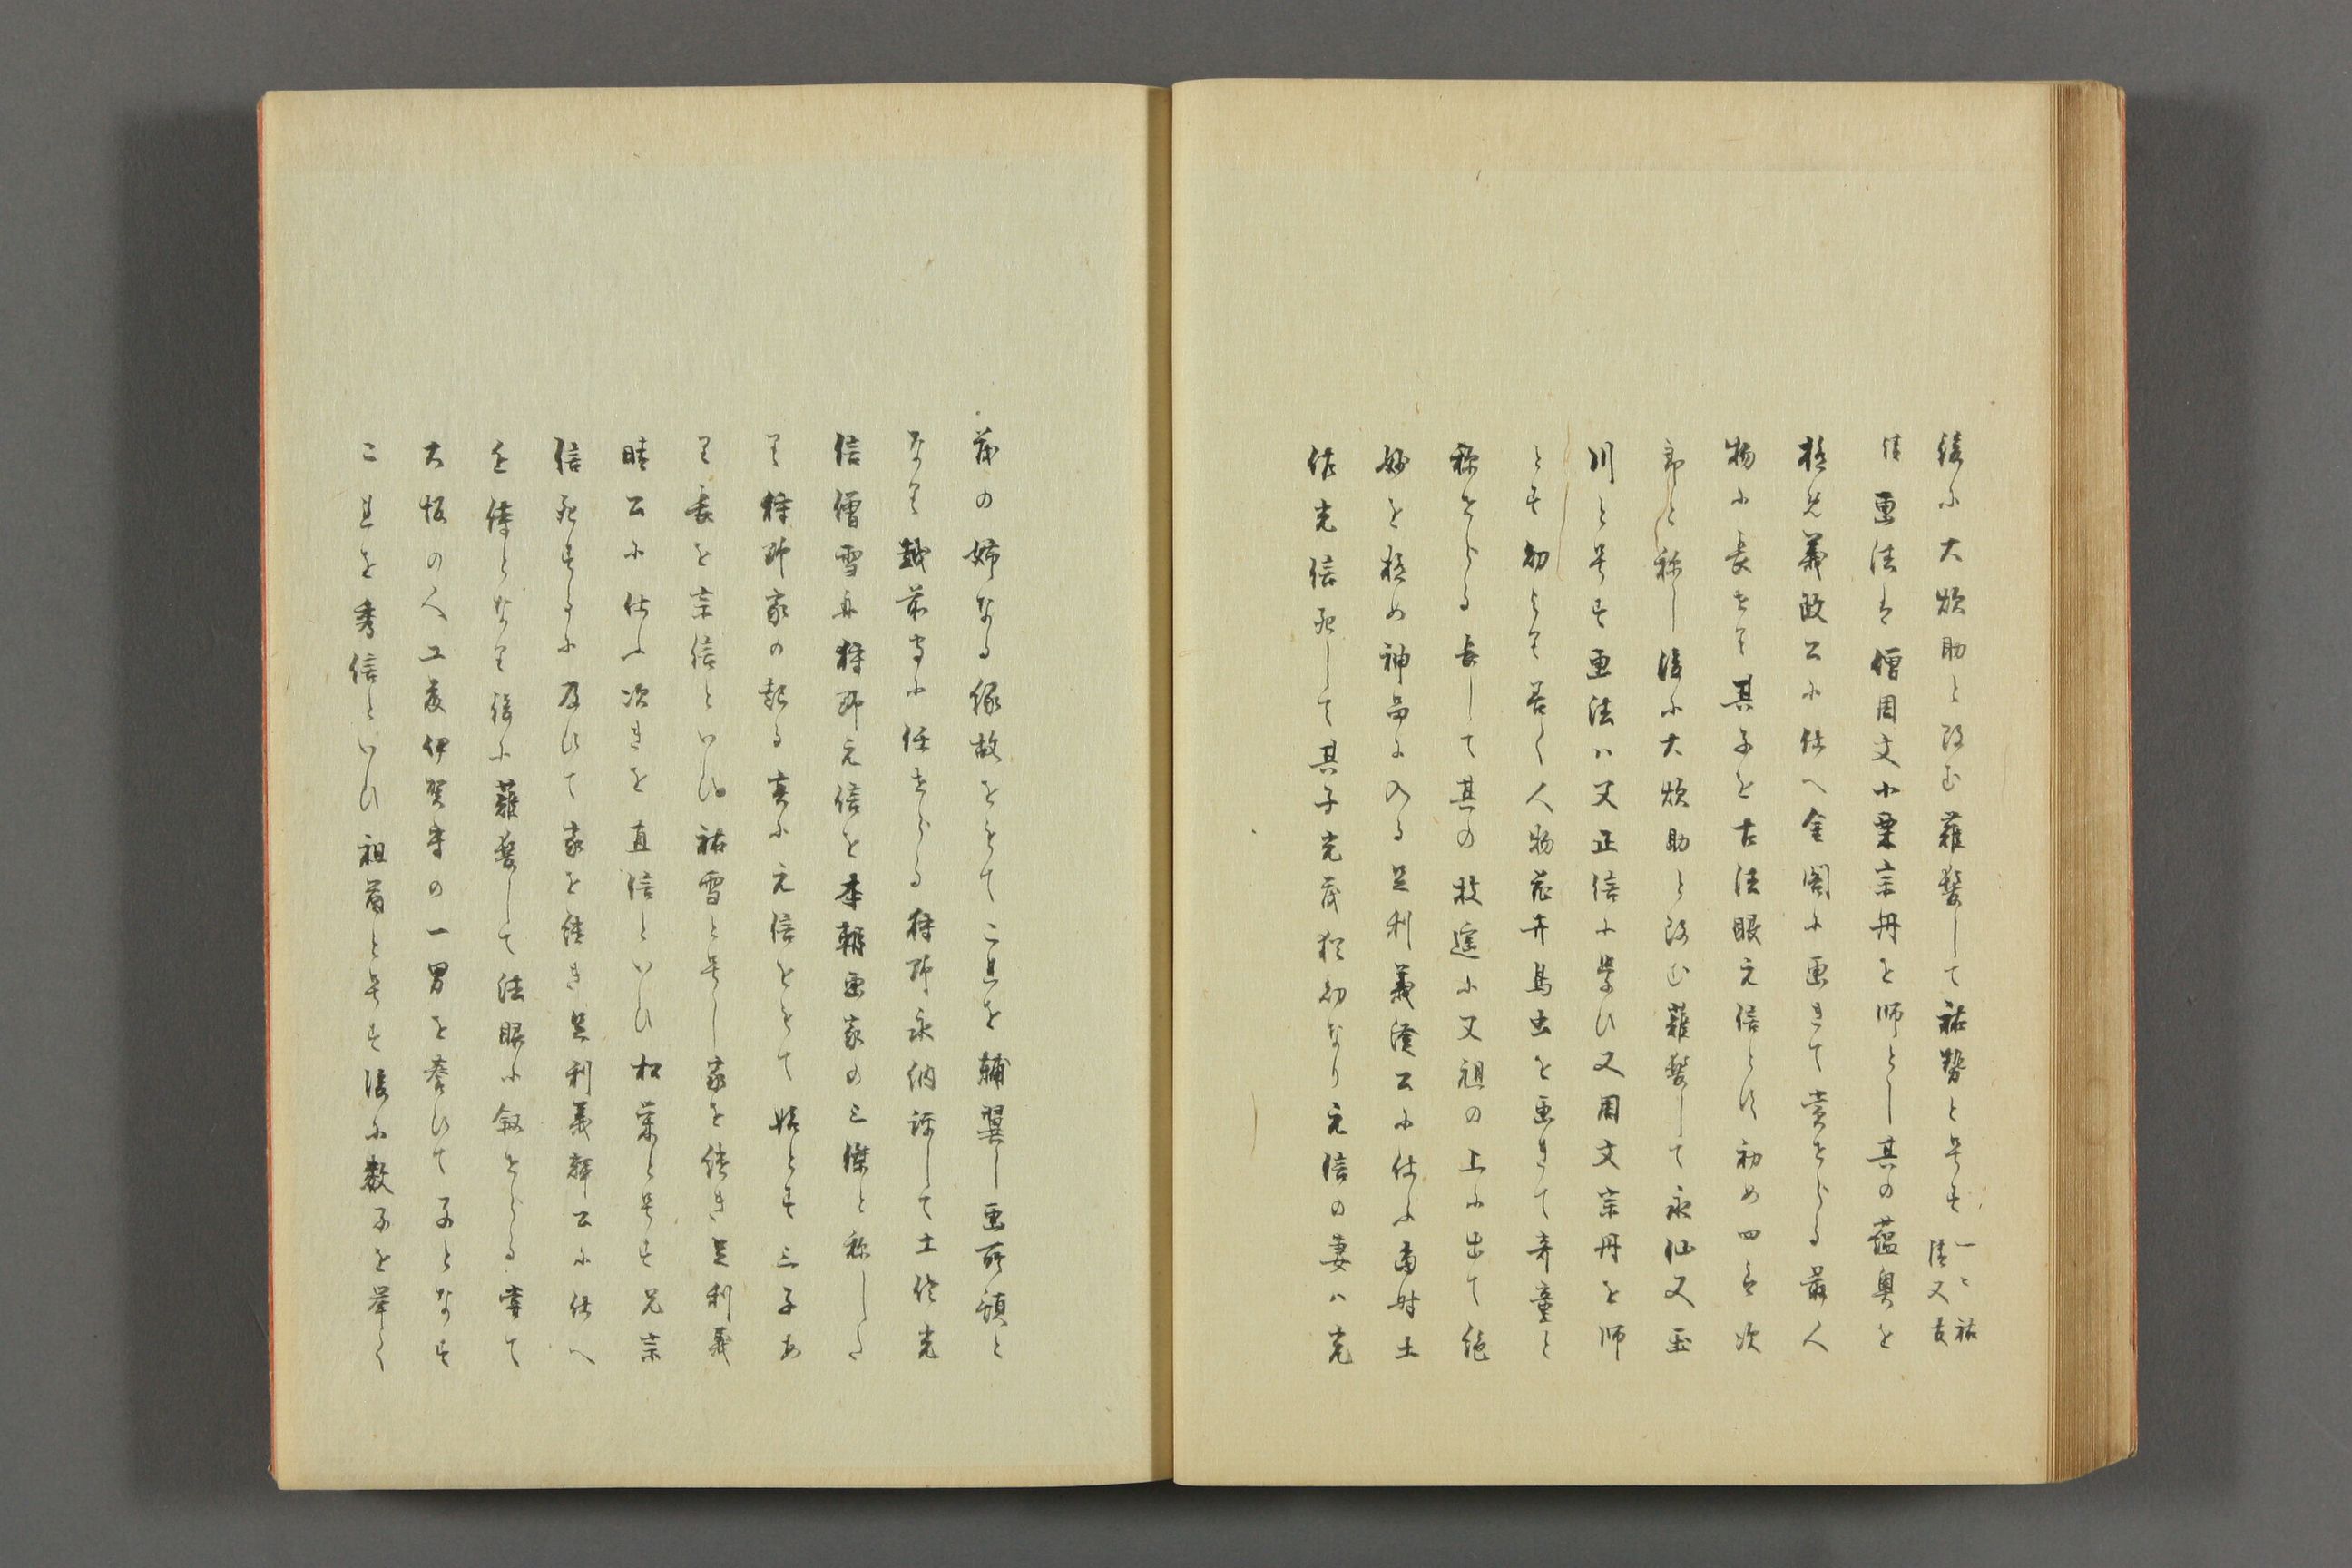 後に大炊助と改む薙髪して祐勢と号す一ニ祐清又友
清画法は僧周文小栗宗丹を師とし其の蘊奥を
極め義政公に仕へ金閣に画きて賞せらる最人
物に長せり其子を古法眼元信とす初め四郎次
郎と称し後に大炊助と改む薙髪して永仙又玉
川と号す画法ハ父正信に学ひ又周文宗丹を師
とす幼より善く人物花卉鳥虫を画きて奇童と
称せらる長して其の技遥に父祖の上に出て絶
妙を極め神品に入る足利義澄公に仕ふ当時土
佐光信死して其子光茂猶幼なり元信の妻ハ光
茂の姉なる縁故をもてこれを輔翼し画所預と
なり越前守に任せらる狩野永納評して土佐光
信僧雪舟狩野元信を本朝画家の三傑と称したり
狩野家の起る実に元信をもて始とす三子あ
り長を宗信といひ祐雪と号し家を続き足利義
晴公に仕ふ次きを直信といひ松栄と号す兄宗
信死するに及ひて家を続き足利義輝公に仕へ
を倖となり後に薙髪して法眼に叙せらる嘗て
大坂の人工藤伊賀守の一男を養ひて子となす
これを秀信といひ祖酉と号す後に数子を挙く